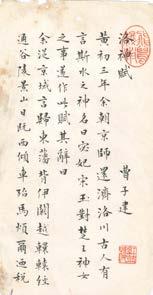 洛神賦 曹子建
黃初三年余朝京師還濟洛川古人有
言斯水之神名曰宓妃宋玉對楚王神女
之事遂作此賦其辭曰
余從京域言歸東藩背伊闕越轘轅經
通谷陵景山日既西傾車殆馬煩爾迺稅